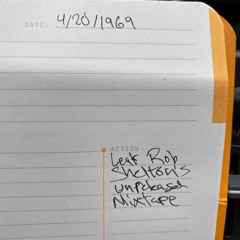 DATE 4/20/1969
ACTION
Leak Rob
Shelton's
unreleased
Mixtape